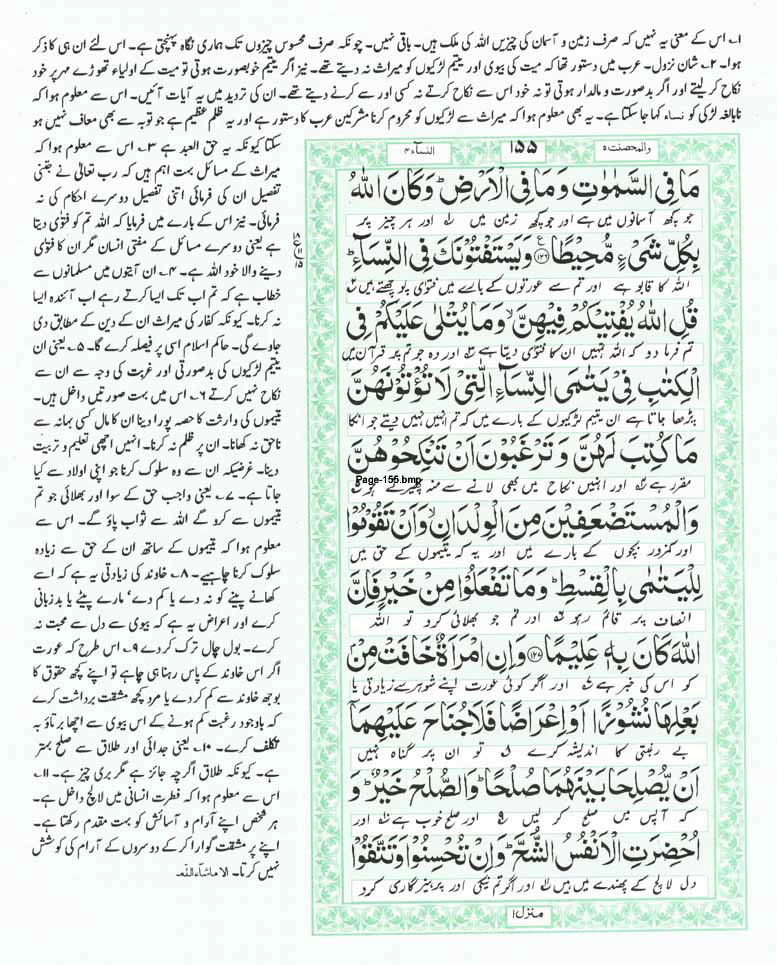 ۱۔ اس کے معنی یہ نہیں کہ صرف زمین و آسمان کی چیزیں اللہ کی ملک ہیں۔ باقی نہیں۔ چونکہ صرف محسوس چیزوں تک ہماری نگاہ پہنچتی ہے۔ اس لئے ان ہی کا ذکر
ہوا۔ ۲۔ شان نزول۔ عرب میں دستور تھا کہ میت کی بیوی اور یتیم لڑکیوں کو میراث نہ دیتے تھے۔ نیز اگر یتیم خوبصورت ہوتی تو میت کے اولیاء تھوڑے مہر پر خود
نکاح کر لیتے اور اگر بدصورت و مالدار ہوتی تو نہ خود اس سے نکاح کرتے نہ کسی اور سے کرنے دیتے تھے۔ ان کی تردید میں یہ آیات آئیں۔ اس سے معلوم ہوا کہ
نابالغہ لڑکی کو نساء کہا جا سکتا ہے۔ یہ بھی معلوم ہوا کہ میراث سے لڑکیوں کو محروم کرنا مشرکین عرب کا دستور ہے اور یہ ظلم عظیم ہے جو توبہ سے بھی معاف نہیں ہو
سکتا کیونکہ یہ حق العبد ہے ۳۔ اس سے معلوم ہوا کہ
میراث کے مسائل بہت اہم ہیں کہ رب تعالیٰ نے جتنی
تفصیل ان کی فرمائی اتنی تفصیل دوسرے احکام کی نہ
فرمائی۔ نیز اس کے بارے میں فرمایا کہ اللہ تم کو فتویٰ دیتا
ہے یعنی دوسرے مسائل کے مفتی انسان مگر ان کا فتویٰ
دینے والا خود اللہ ہے۔ ۴۔ ان آیتوں میں مسلمانوں سے
خطاب ہے کہ تم اب تک ایسا کرتے رہے اب آئندہ ایسا
نہ کرنا۔ کیونکہ کفار کی میراث ان کے دین کے مطابق دی
جاوے گی۔ حاکم اسلام اسی پر فیصلہ کرے گا۔ ۵۔ یعنی ان
یتیم لڑکیوں کی بدصورتی اور غربت کی وجہ سے ان سے
نکاح نہیں کرتے ۶۔ اس میں بہت صورتیں داخل ہیں۔
یتیموں کی وارثت کا حصہ پورا دینا ان کا مال کسی بہانہ سے
ناحق نہ کھانا۔ ان پر ظلم نہ کرنا۔ انہیں اچھی تعلیم و تربیت
دینا۔ غرضیکہ ان سے وہ سلوک کرنا جو اپنی اولاد سے کیا
جاتا ہے۔ ۷۔ یعنی واجب حق کے سوا اور بھلائی جو تم
یتیموں سے کرو گے اللہ سے ثواب پاؤ گے۔ اس سے
معلوم ہوا کہ یتیموں کے ساتھ ان کے حق سے زیادہ
سلوک کرنا چاہیے۔ ۸۔ خاوند کی زیادتی یہ ہے کہ اسے
کھانے پینے کو نہ دے یا کم دے، مارے پیٹے یا بدزبانی
کرے اور اعراض یہ ہے کہ بیوی سے دل سے محبت نہ
کرے۔ بول چال ترک کر دے ۹۔ اس طرح کہ عورت
اگر اس خاوند کے پاس رہنا ہی چاہے تو اپنے کچھ حقوق کا
بوجھ خاوند سے کم کر دے یا مرد کچھ مشقت برداشت کرے
کہ باوجود رغبت کم ہونے کے اس بیوی سے اچھا برتاؤ بہ
تکلف کرے۔ ۱۰۔ یعنی جدائی اور طلاق سے صلح بہتر
ہے۔ کیونکہ طلاق اگرچہ جائز ہے مگر بری چیز ہے۔ ۱۱۔
اس سے معلوم ہوا کہ فطرت انسانی میں لالچ داخل ہے۔
ہر شخص اپنے آرام و آسائش کو بہت مقدم رکھتا ہے۔
اپنے پر مشقت گوارا کر کے دوسروں کے آرام کی کوشش
نہیں کرتا۔ الا ماشاء اللہ۔
والمحصنت ۵
۱۵۵
النساء ۴
مَا فِی السَّمٰوٰتِ وَمَا فِی الْاَرْضِ ؕ وَكَانَ اللّٰهُ
جو کچھ آسمانوں میں ہے اور جو کچھ زمین میں اور ہر چیز پر
بِكُلِّ شَیْءٍ مُّحِیْطًا ﴿۱۲۶﴾ وَیَسْتَفْتُوْنَكَ فِی النِّسَآءِ ؕ
اللہ کا قابو ہے اور تم سے عورتوں کے بارے میں فتویٰ پوچھتے ہیں
قُلِ اللّٰهُ یُفْتِیْكُمْ فِیْهِنَّ ۙ وَمَا یُتْلٰی عَلَیْكُمْ فِی
تم فرما دو کہ اللہ تمہیں ان کا فتویٰ دیتا ہے اور وہ جو تم پر قرآن میں
الْكِتٰبِ فِیْ یَتٰمَی النِّسَآءِ الّٰتِیْ لَا تُؤْتُوْنَهُنَّ
پڑھا جاتا ہے ان یتیم لڑکیوں کے بارے میں کہ تم انہیں نہیں دیتے جو انکا
مَا كُتِبَ لَهُنَّ وَتَرْغَبُوْنَ اَنْ تَنْكِحُوْهُنَّ
Page-155.bmp
مقرر ہے اور انہیں نکاح میں بھی لانے سے منہ پھیرتے ہو
وَالْمُسْتَضْعَفِیْنَ مِنَ الْوِلْدَانِ ۙ وَاَنْ تَقُوْمُوْا
اور کمزور بچوں کے بارے میں اور یہ کہ یتیموں کے حق میں
لِلْیَتٰمٰی بِالْقِسْطِ ؕ وَمَا تَفْعَلُوْا مِنْ خَیْرٍ فَاِنَّ
انصاف پر قائم رہو اور تم جو بھلائی کرو تو اللہ
اللّٰهَ كَانَ بِهٖ عَلِیْمًا ﴿۱۲۷﴾ وَاِنِ امْرَاَةٌ خَافَتْ مِنْۢ
کو اس کی خبر ہے اور اگر کوئی عورت اپنے شوہر سے زیادتی یا
بَعْلِهَا نُشُوْزًا اَوْ اِعْرَاضًا فَلَا جُنَاحَ عَلَیْهِمَاۤ
بے رغبتی کا اندیشہ کرے تو ان پر گناہ نہیں
اَنْ یُّصْلِحَا بَیْنَهُمَا صُلْحًا ؕ وَالصُّلْحُ خَیْرٌ ؕ وَ
کہ آپس میں صلح کر لیں اور صلح خوب ہے اور
اُحْضِرَتِ الْاَنْفُسُ الشُّحَّ ؕ وَاِنْ تُحْسِنُوْا وَتَتَّقُوْا
دل لالچ کے پھندے میں ہیں اور اگر تم نیکی اور پرہیزگاری کرو
منزل ۱